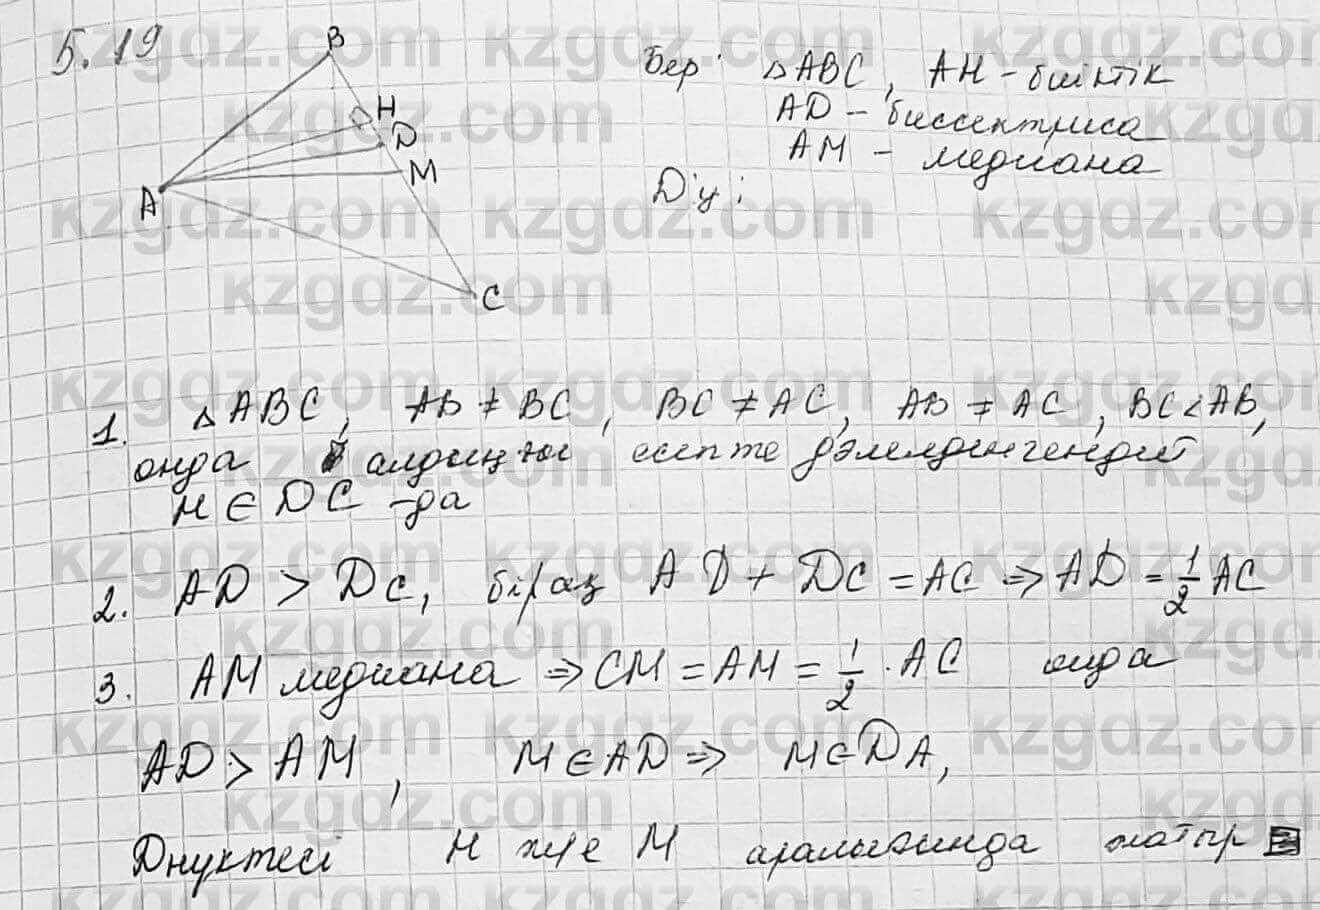 5.19
B
H
D
M
A
C
Бер: △ABC, AH - биіктік
AD - биссектриса
AM - медиана
D'у:
1. △ABC, AB ≠ BC, BC ≠ AC, AB ≠ AC, BC < AB,
онда алдыңғы есепте дәлелденгендей
H ∈ DC -да
2. AD > DC, бірақ AD + DC = AC ⇒ AD = 1/2 AC
3. AM медиана ⇒ CM = AM = 1/2 · AC онда
AD > AM, M ∈ AD ⇒ M ∈ DA,
D нүктесі H және M аралығында жатыр
kzgdz.com